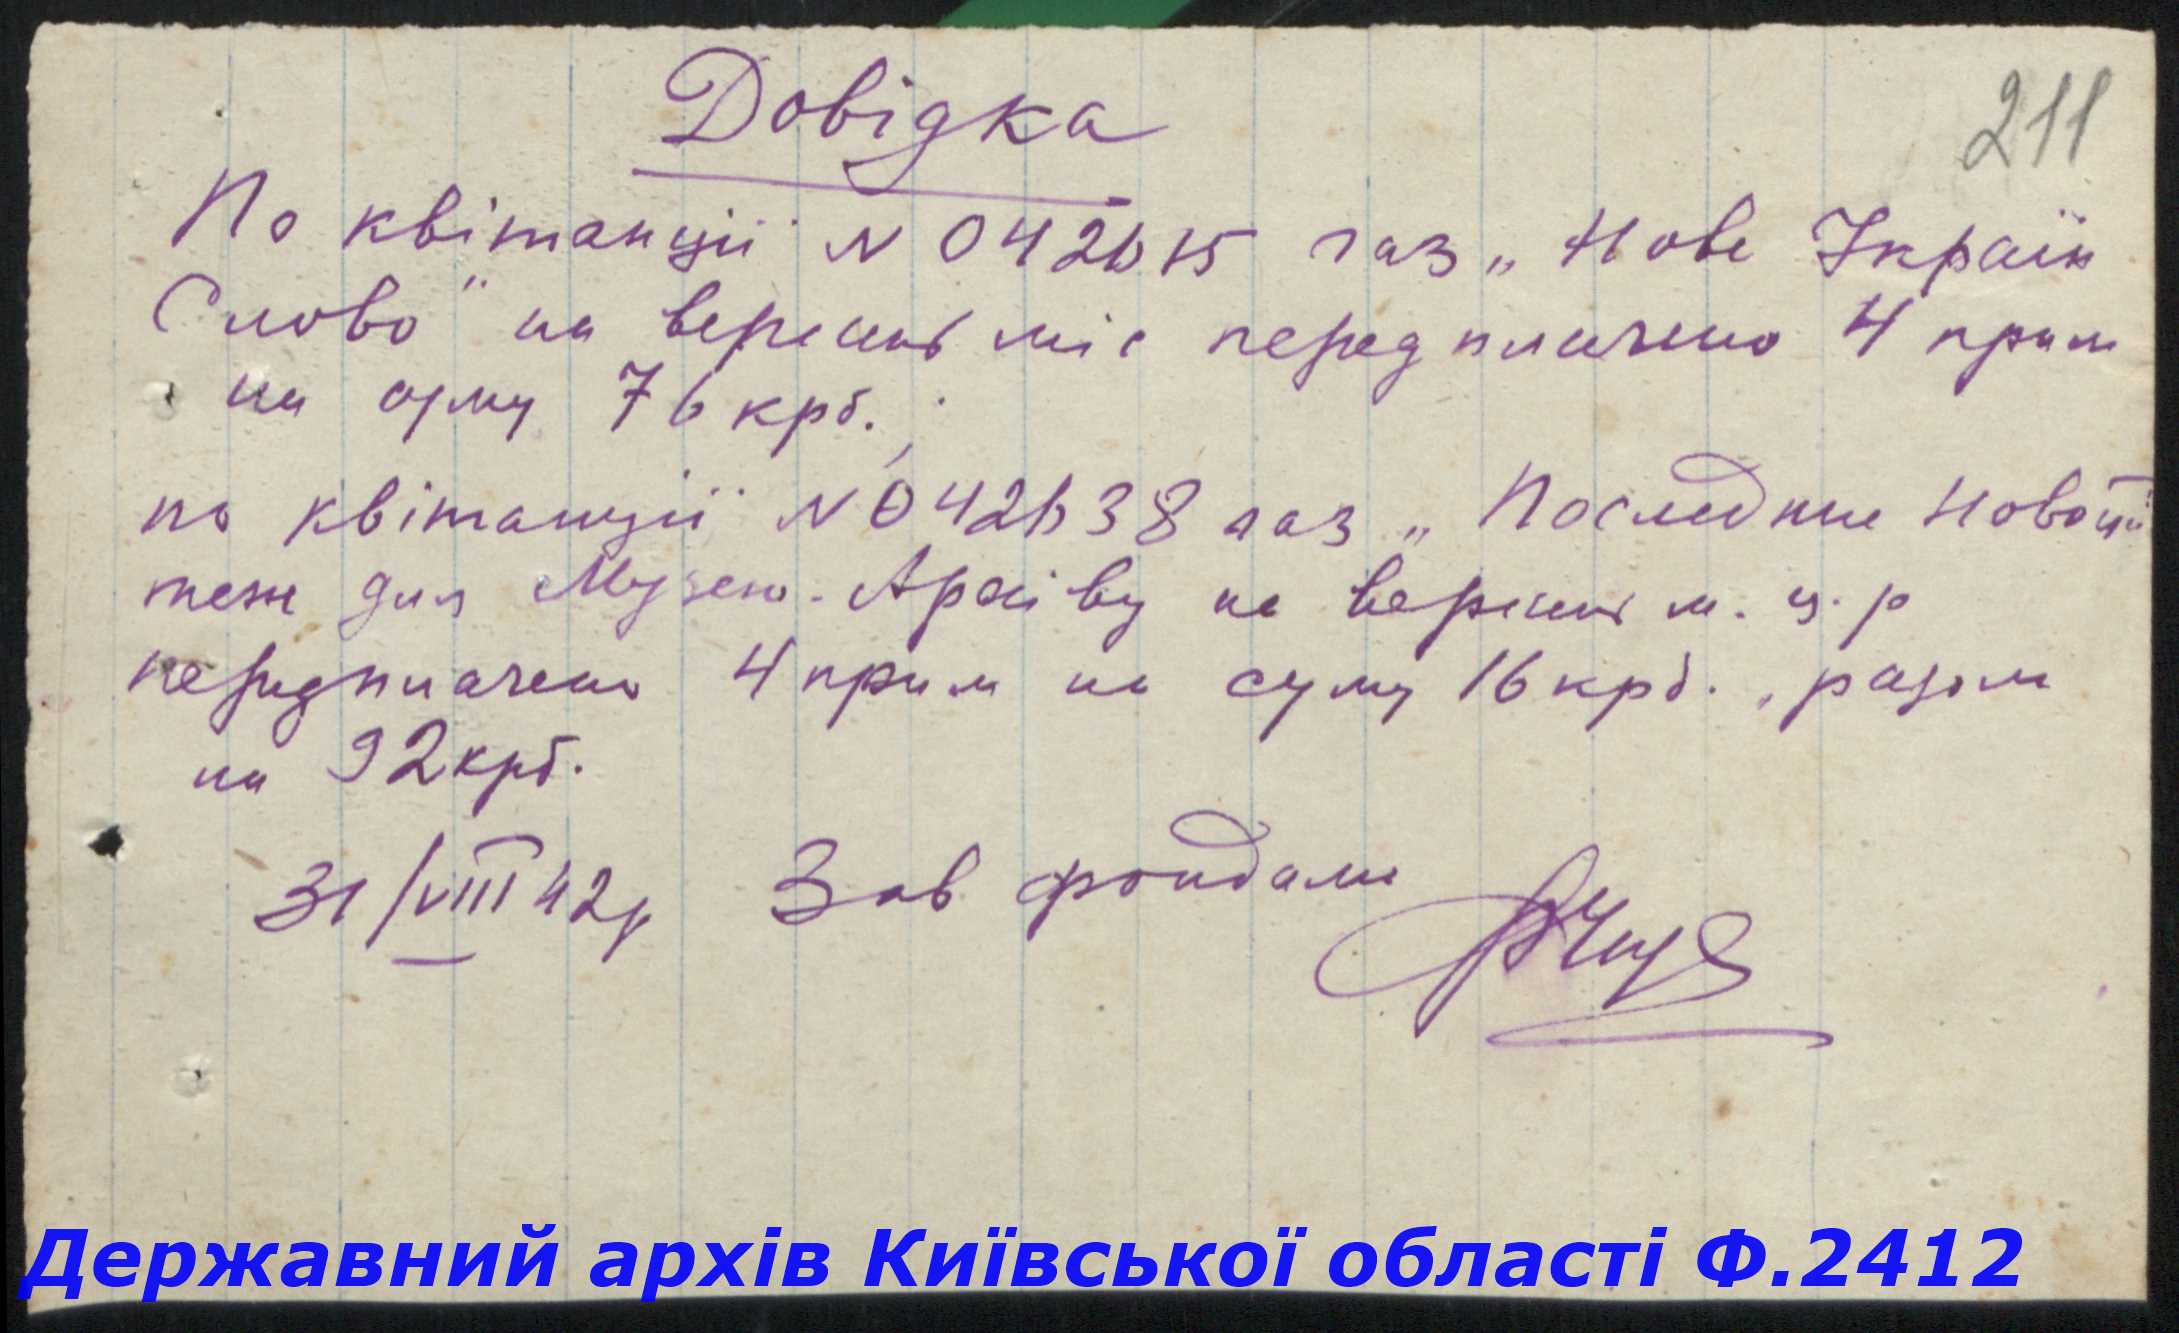 211
Довідка
По квітанції N 042615 газ „Нове Україн
Слово" на вересень міс передплачено 4 прим
на суму 76 крб.,
по квітанції N 042638 газ „Последние Новости
теж для Музею-Архіву на вересень м. ц. р
передплачено 4 прим на суму 16 крб., разом
на 92 крб.
31/VIII 42 р Зав фондами
Державний архів Київської області Ф.2412